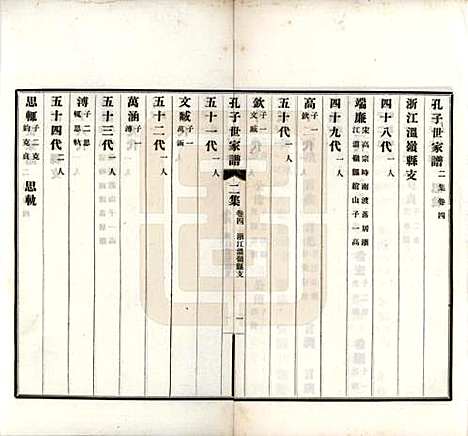 孔子世家譜 二集 卷四
浙江溫嶺縣支
四十八代 一人
端廉 宋高宗時南渡落居浙江溫嶺縣館山子一高
四十九代 一人
高 子一欽
五十代 一人
欽 子一文臧
孔子世家譜 二集 卷四 浙江溫嶺縣支 一
五十一代 一人
文臧 子一萬涵
五十二代 一人
萬涵 子一溥
五十三代 一人
溥 子二思輒思軌
五十四代 二人
思輒 子二克鈞克貞 思軌